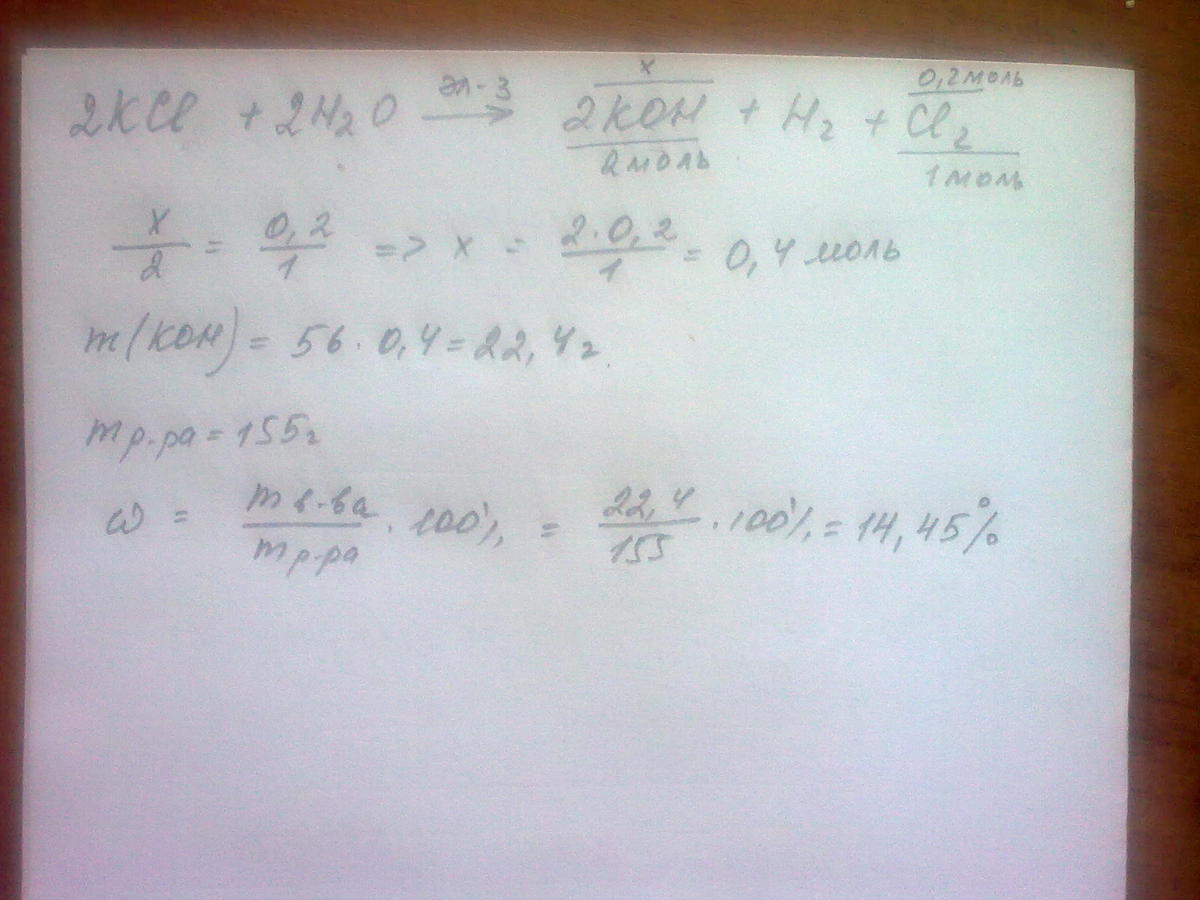 2KCl + 2H₂O —эл-з→ 2KOH + H₂ + Cl₂
x 0,2 моль
2 моль 1 моль
x/2 = 0,2/1 => x = 2·0,2/1 = 0,4 моль
m(KOH) = 56·0,4 = 22,4 г.
m р-ра = 155 г
ω = m в-ва/m р-ра · 100% = 22,4/155 · 100% = 14,45%